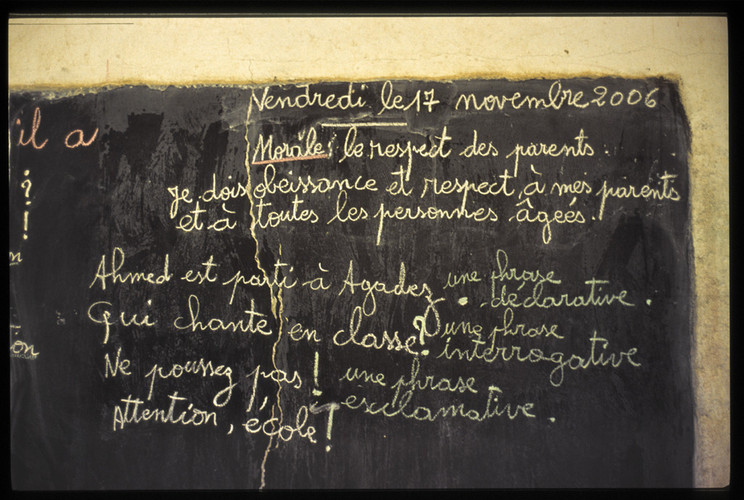 il a
?
!
n
on
Vendredi le 17 novembre 2006
Morale: le respect des parents.
Je dois obeissance et respect à mes parents
et à toutes les personnes âgeés.
Ahmed est parti à Agadez. une phrase
déclarative.
Qui chante en classe? une phrase
interrogative
Ne poussez pas! une phrase
exclamative.
Attention, école!